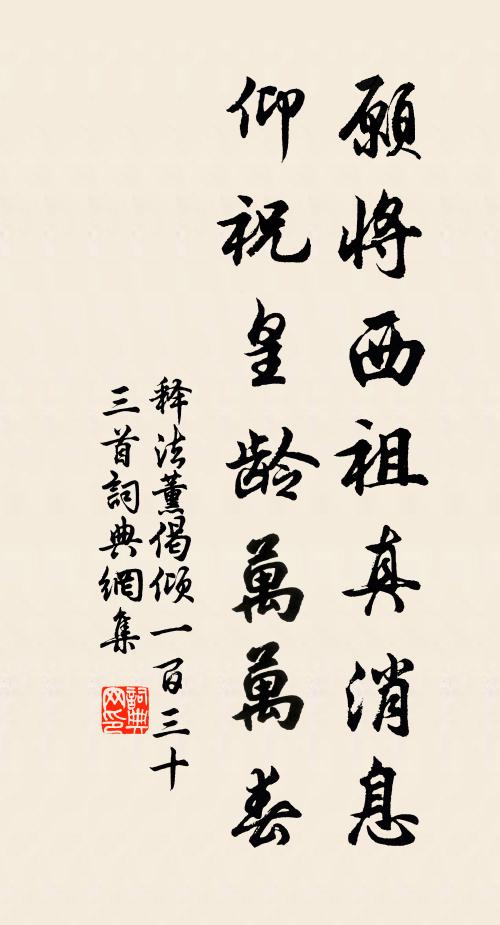 願將西祖真消息
仰祝皇龄萬萬春
释法薰偈倾一百三十
三首詞典網集
詞典網印